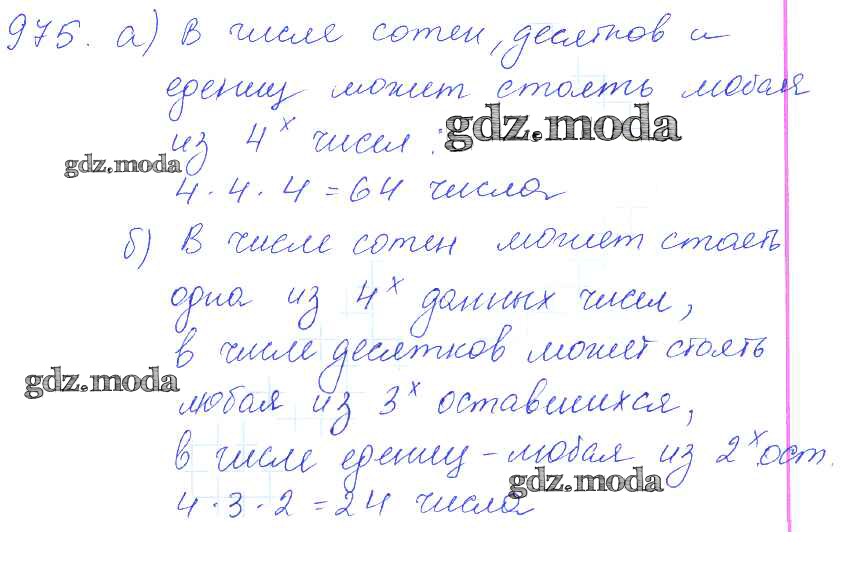 975. а) В числе сотен, десятков и
едениц может стоять любая
из 4х чисел :
gdz.moda
gdz.moda
4 · 4 · 4 = 64 числа
б) В числе сотен может стоять
одна из 4х данных чисел,
в числе десятков может стоять
gdz.moda
любая из 3х оставшихся,
в числе едениц - любая из 2х ост.
gdz.moda
4 · 3 · 2 = 24 числа